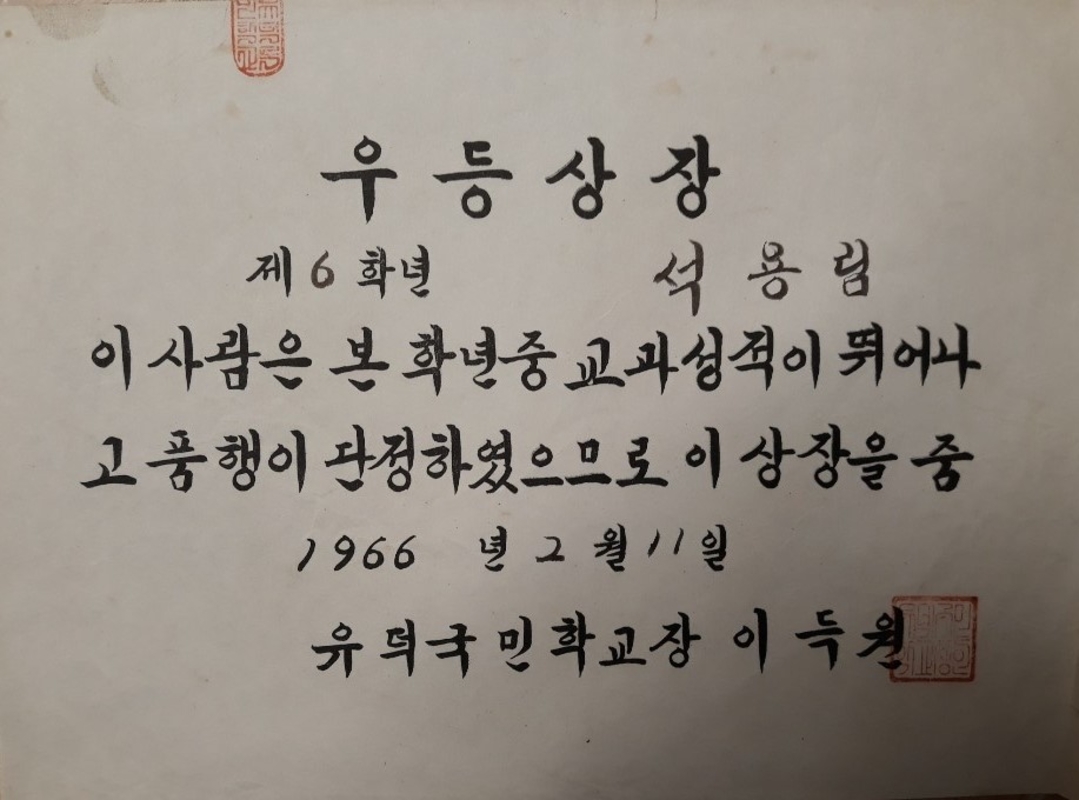 우등상장
제6학년 석용림
이 사람은 본 학년중 교과성적이 뛰어나
고 품행이 단정하였으므로 이 상장을 줌
1966 년 2 월 11 일
유덕국민학교장 이득원